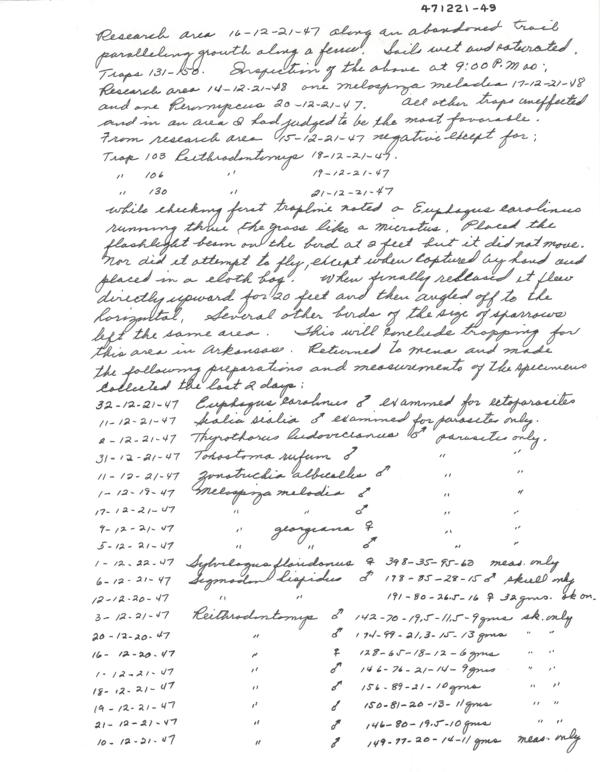 471221-49
Research area 16-12-21-47 along an abandoned trail
paralleling growth along a fence. Soil wet and saturated.
Traps 131-150. Inspection of the above at 9:00 P.M. as:
Research area 14-12-21-48 one melospiza melodia 17-12-21-48
and one Peromyscus 20-12-21-47. All other traps uneffected
and in an area I had judged to be the most favorable.
From research area 15-12-21-47 negative except for;
Trap 103 Reithrodontomys 18-12-21-47.
" 106 " 19-12-21-47
" 130 " 21-12-21-47
While checking first trapline noted a Euphagus carolinus
running thru the grass like a microtus. Placed the
flashlight beam on the bird at 2 feet but it did not move.
Nor did it attempt to fly, except when captured by hand and
placed in a cloth bag. When finally released it flew
directly upward for 20 feet and then angled off to the
horizontal. Several other birds of the size of sparrows
left the same area. This will conclude trapping for
this area in Arkansas. Returned to Mena and made
the following preparations and measurements of the specimens
collected the last 2 days:
32-12-21-47 Euphagus carolinus ♂ examined for ectoparasites
11-12-21-47 Sialia sialia ♂ examined for parasites only.
2-12-21-47 Thyrothorus ludovicianus ♂ parasites only.
31-12-21-47 Toxostoma rufum ♂ " "
11-12-21-47 Zonotrichia albicollis ♂ " "
1-12-19-47 Melospiza melodia ♂ " "
17-12-21-47 " " ♂ " "
9-12-21-47 " georgiana ♀ " "
5-12-21-47 " " ♂ " "
1-12-22-47 Sylvilagus floridanus ♀ 398-35-95-60 meas. only
6-12-21-47 Sigmodon hispidus ♂ 198-85-28-15 ♂ skull only
12-12-20-47 " " 191-80-26.5-16 ♀ 32gms. sk on.
3-12-21-47 Reithrodontomys ♂ 142-70-19.5-11.5-9gms sk. only
20-12-20-47 " ♂ 174-99-21.3-15-13gms " "
16-12-20-47 " ♀ 128-65-18-12-6gms " "
1-12-21-47 " ♂ 146-76-21-14-9gms " "
18-12-21-47 " ♂ 156-89-21-10gms " "
19-12-21-47 " ♂ 150-81-20-13-11gms " "
21-12-21-47 " ♂ 146-80-19.5-10gms " "
10-12-21-47 " ♂ 149-77-20-14-11gms meas. only